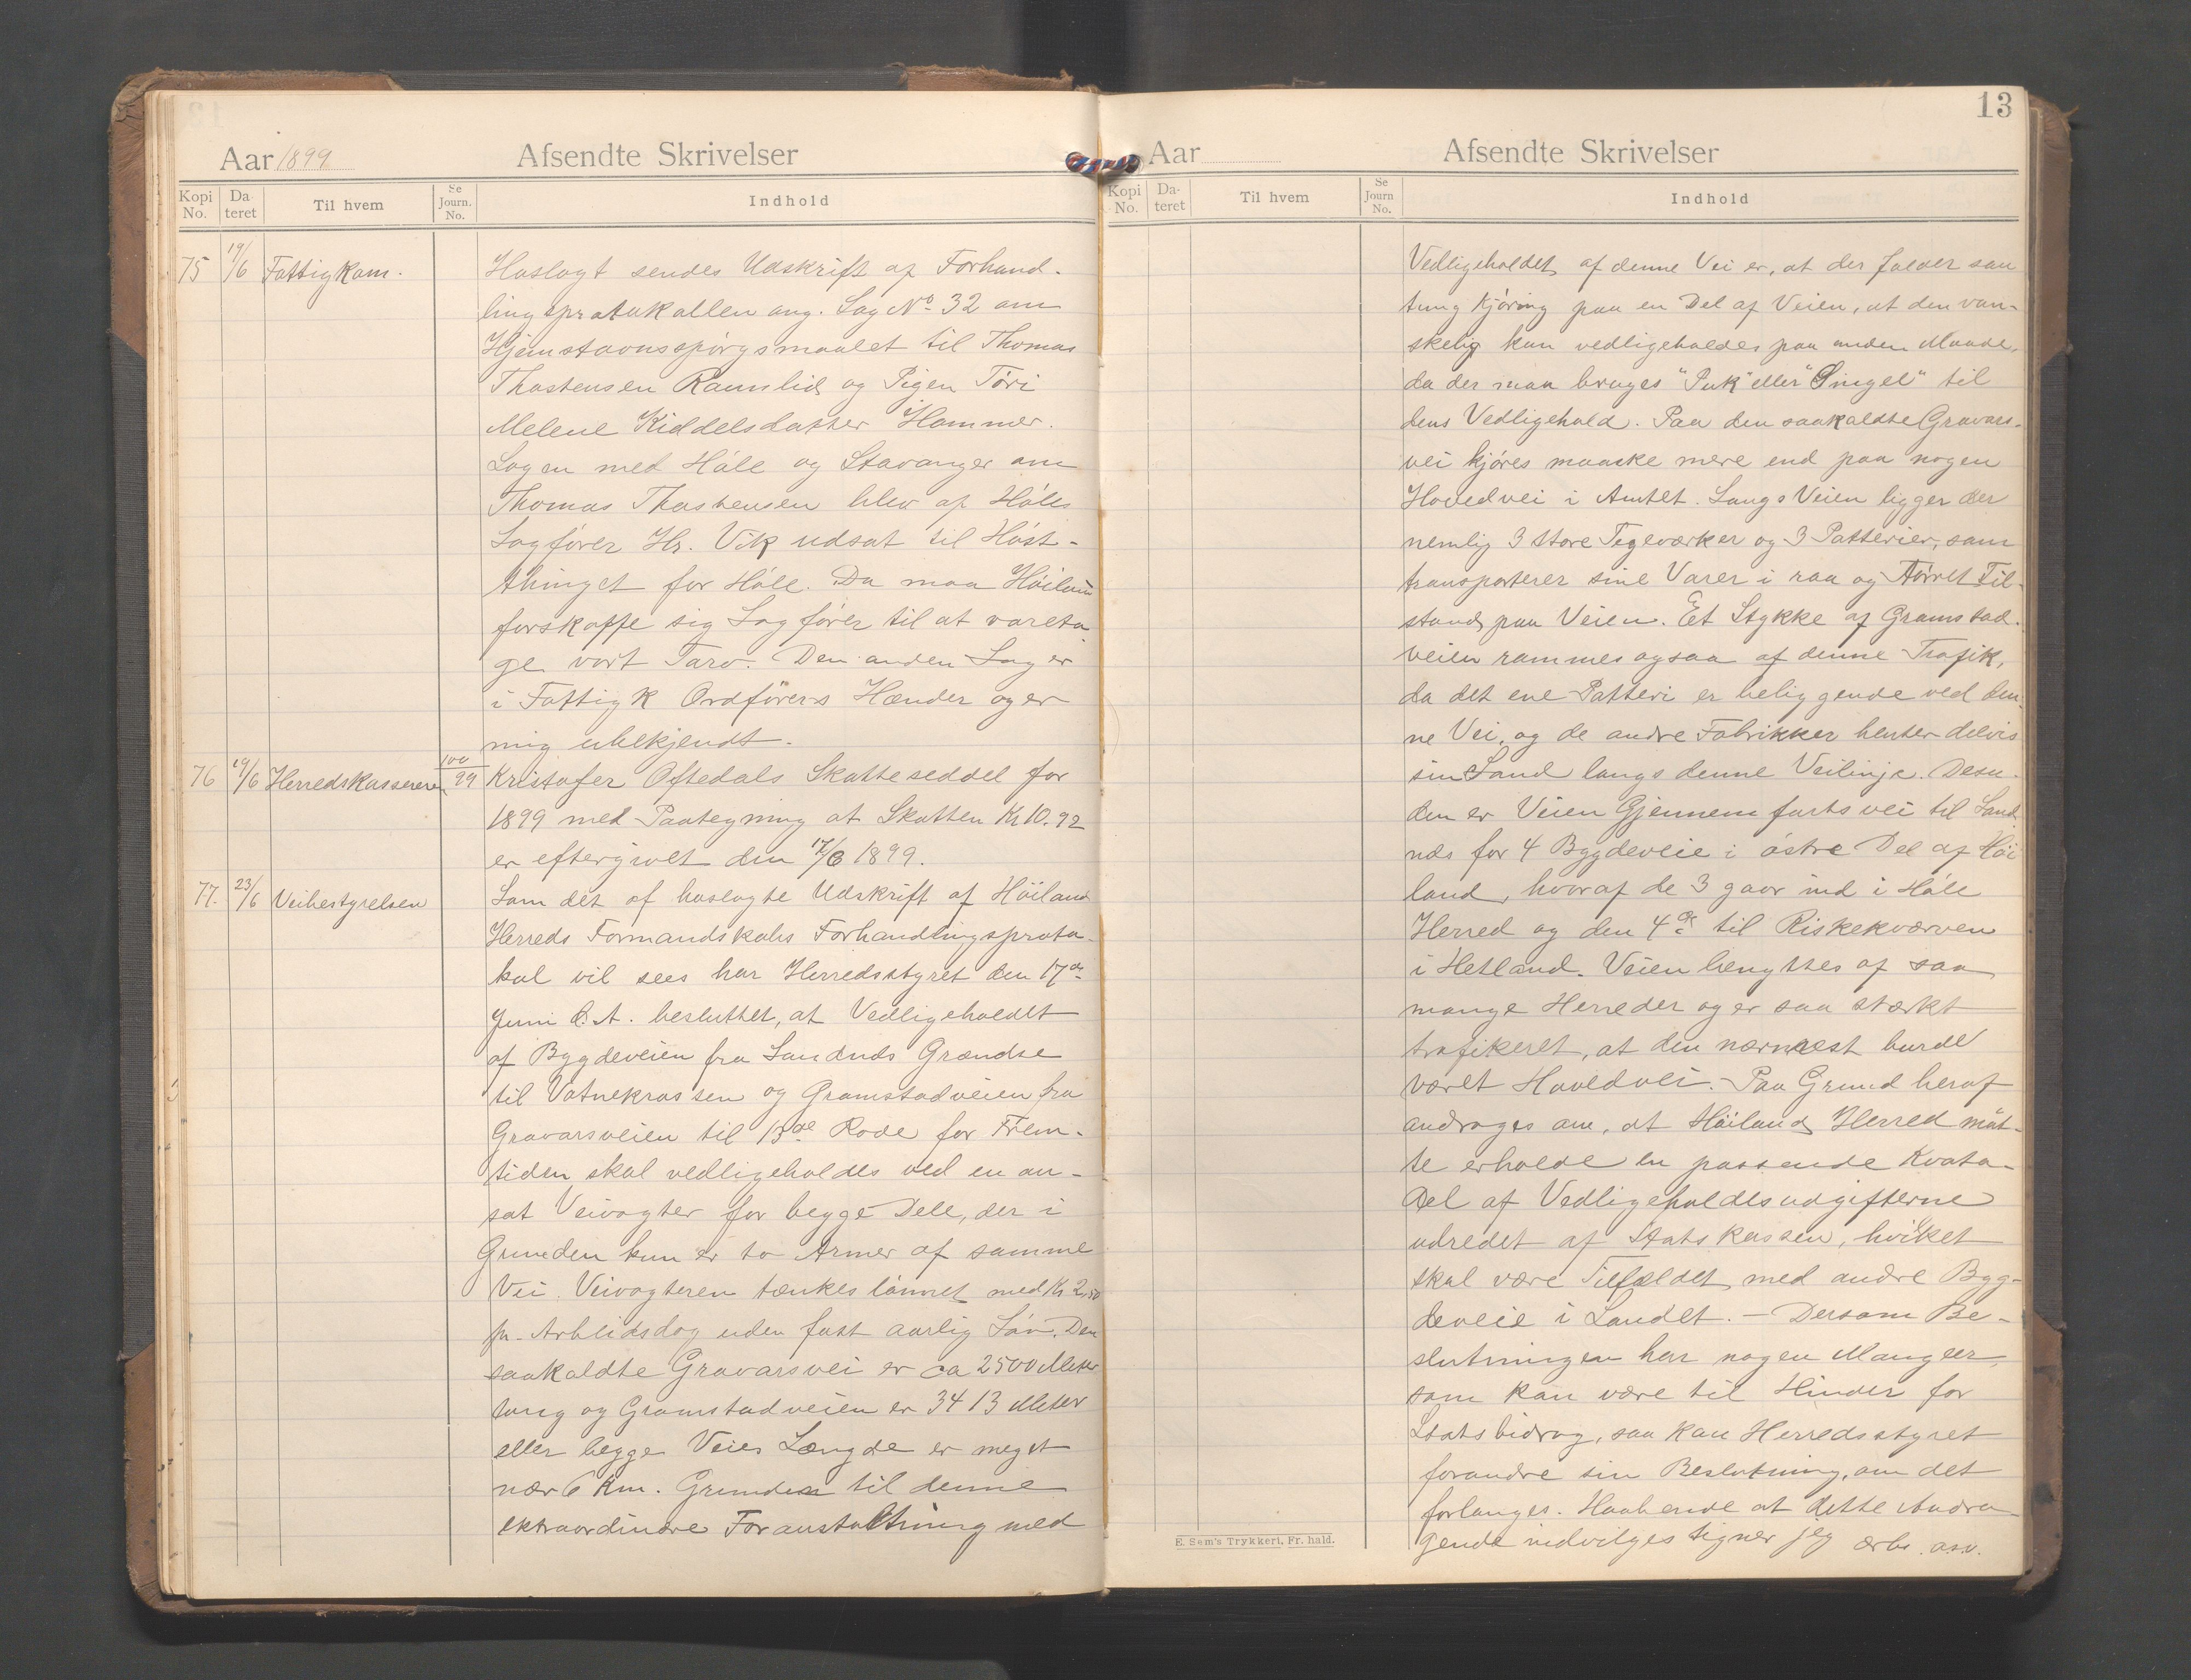 Aar 1899 Afsendte Skrivelser
Kopi No. Da- teret Til hvem Se Journ. No. Indhold
75 19/6 Fattigkom. Hoslagt sendes Udskrift af Forhand-
lingsprotokollen ang. Sag No 32 om
Hjemstavnsspørgsmaalet til Thomas
Thostensen Ramnlid og Pigen Tøri
Melene Kiddelsdatter Hommer.
Sagen med Høle og Stavanger om
Thomas Thostensen blev af Høles
Sagfører Hr. Vik udsat til Høst-
thinget for Høle. Da maa Høiland
forskaffe sig Sagfører til at vareta-
ge vort Tarv. Den anden Sag er
i Fattigk Ordførers Hænder og er
mig ubekjendt.
76 19/6 Herredskassereren 100/99 Kristofer Oftedals Skatteseddel for
1899 med Paategning at Skatten Kr 10.92
er eftergivet den 17/6 1899.
77. 23/6 Veibestyrelsen Som det af hoslagte Udskrift af Høiland
Herreds Formandskabs Forhandlingsproto-
kol vil sees har Herredsstyret den 17de
Juni d. A. besluttet, at Vedligeholdet
af Bygdeveien fra Sandnds Grændse
til Vatnekrossen og Gramstadveien fra
Gravarsveien til 13de Rode for Frem-
tiden skal vedligeholdes ved en an-
sat Veivogter for begge Dele, der i
Grunden kun er to Armer af samme
Vei. Veivogteren tænkes lønnet med Kr 2,50
pr. Arbeidsdag uden fast aarlig Løn. Den
saakaldte Gravarsvei er ca 2500 Meter
lang og Gramstadveien er 3413 Meter
eller begge Veies Længde er meget
nær 6 Km. Grunden til denne
extraordinære Foranstaltning med
13
Aar Afsendte Skrivelser
Kopi No. Da- teret Til hvem Se Journ No. Indhold
Vedligeholdet af denne Vei er, at der falder saa
tung Kjøring paa en Del af Veien, at den van-
skelig kan vedligeholdes paa anden Maade,
da der maa bruges "Puk" eller "Singel" til
dens Vedligehold. Paa den saakaldte Gravars-
vei kjøres maaske mere end paa nogen
Hovedvei i Amtet. Langs Veien ligger der
nemlig 3 store Tegeværker og 3 Potterier, som
transporterer sine Varer i raa og tørret Til-
stand paa Veien. Et Stykke af Gramstad-
veien rammes ogsaa af denne Trafik,
da det ene Potteri er beliggende ved den-
ne Vei, og de andre Fabrikker henter delvis
sin Sand langs denne Veilinje. Desu-
den er Veien Gjennemfartsvei til Sand-
nds for 4 Bygdeveie i østre Del af Høi
land, hvoraf de 3 gaar ind i Høle
Herred og den 4de til Riskekværven
i Hetland. Veien benyttes af saa
mange Herreder og er saa stærkt
trafikeret, at den nærmest burde
været Hovedvei. - Paa Grund heraf
andrages om, at Høiland Herred måt-
te erholde en passende Kvota-
Del af Vedligeholdesudgifterne
udredet af Statskassen, hvilket
skal være Tilfældet med andre Byg-
deveie i Landet. - Dersom Be-
slutningen har nogen Mangler,
som kan være til Hinder for
Statsbidrag, saa kan Herredsstyret
forandre sin Beslutning, om det
forlanges. Haabende at dette Andra-
gende indvilges tegner jeg ærb. osv.
E. Sem's Trykkeri, Fr. hald.